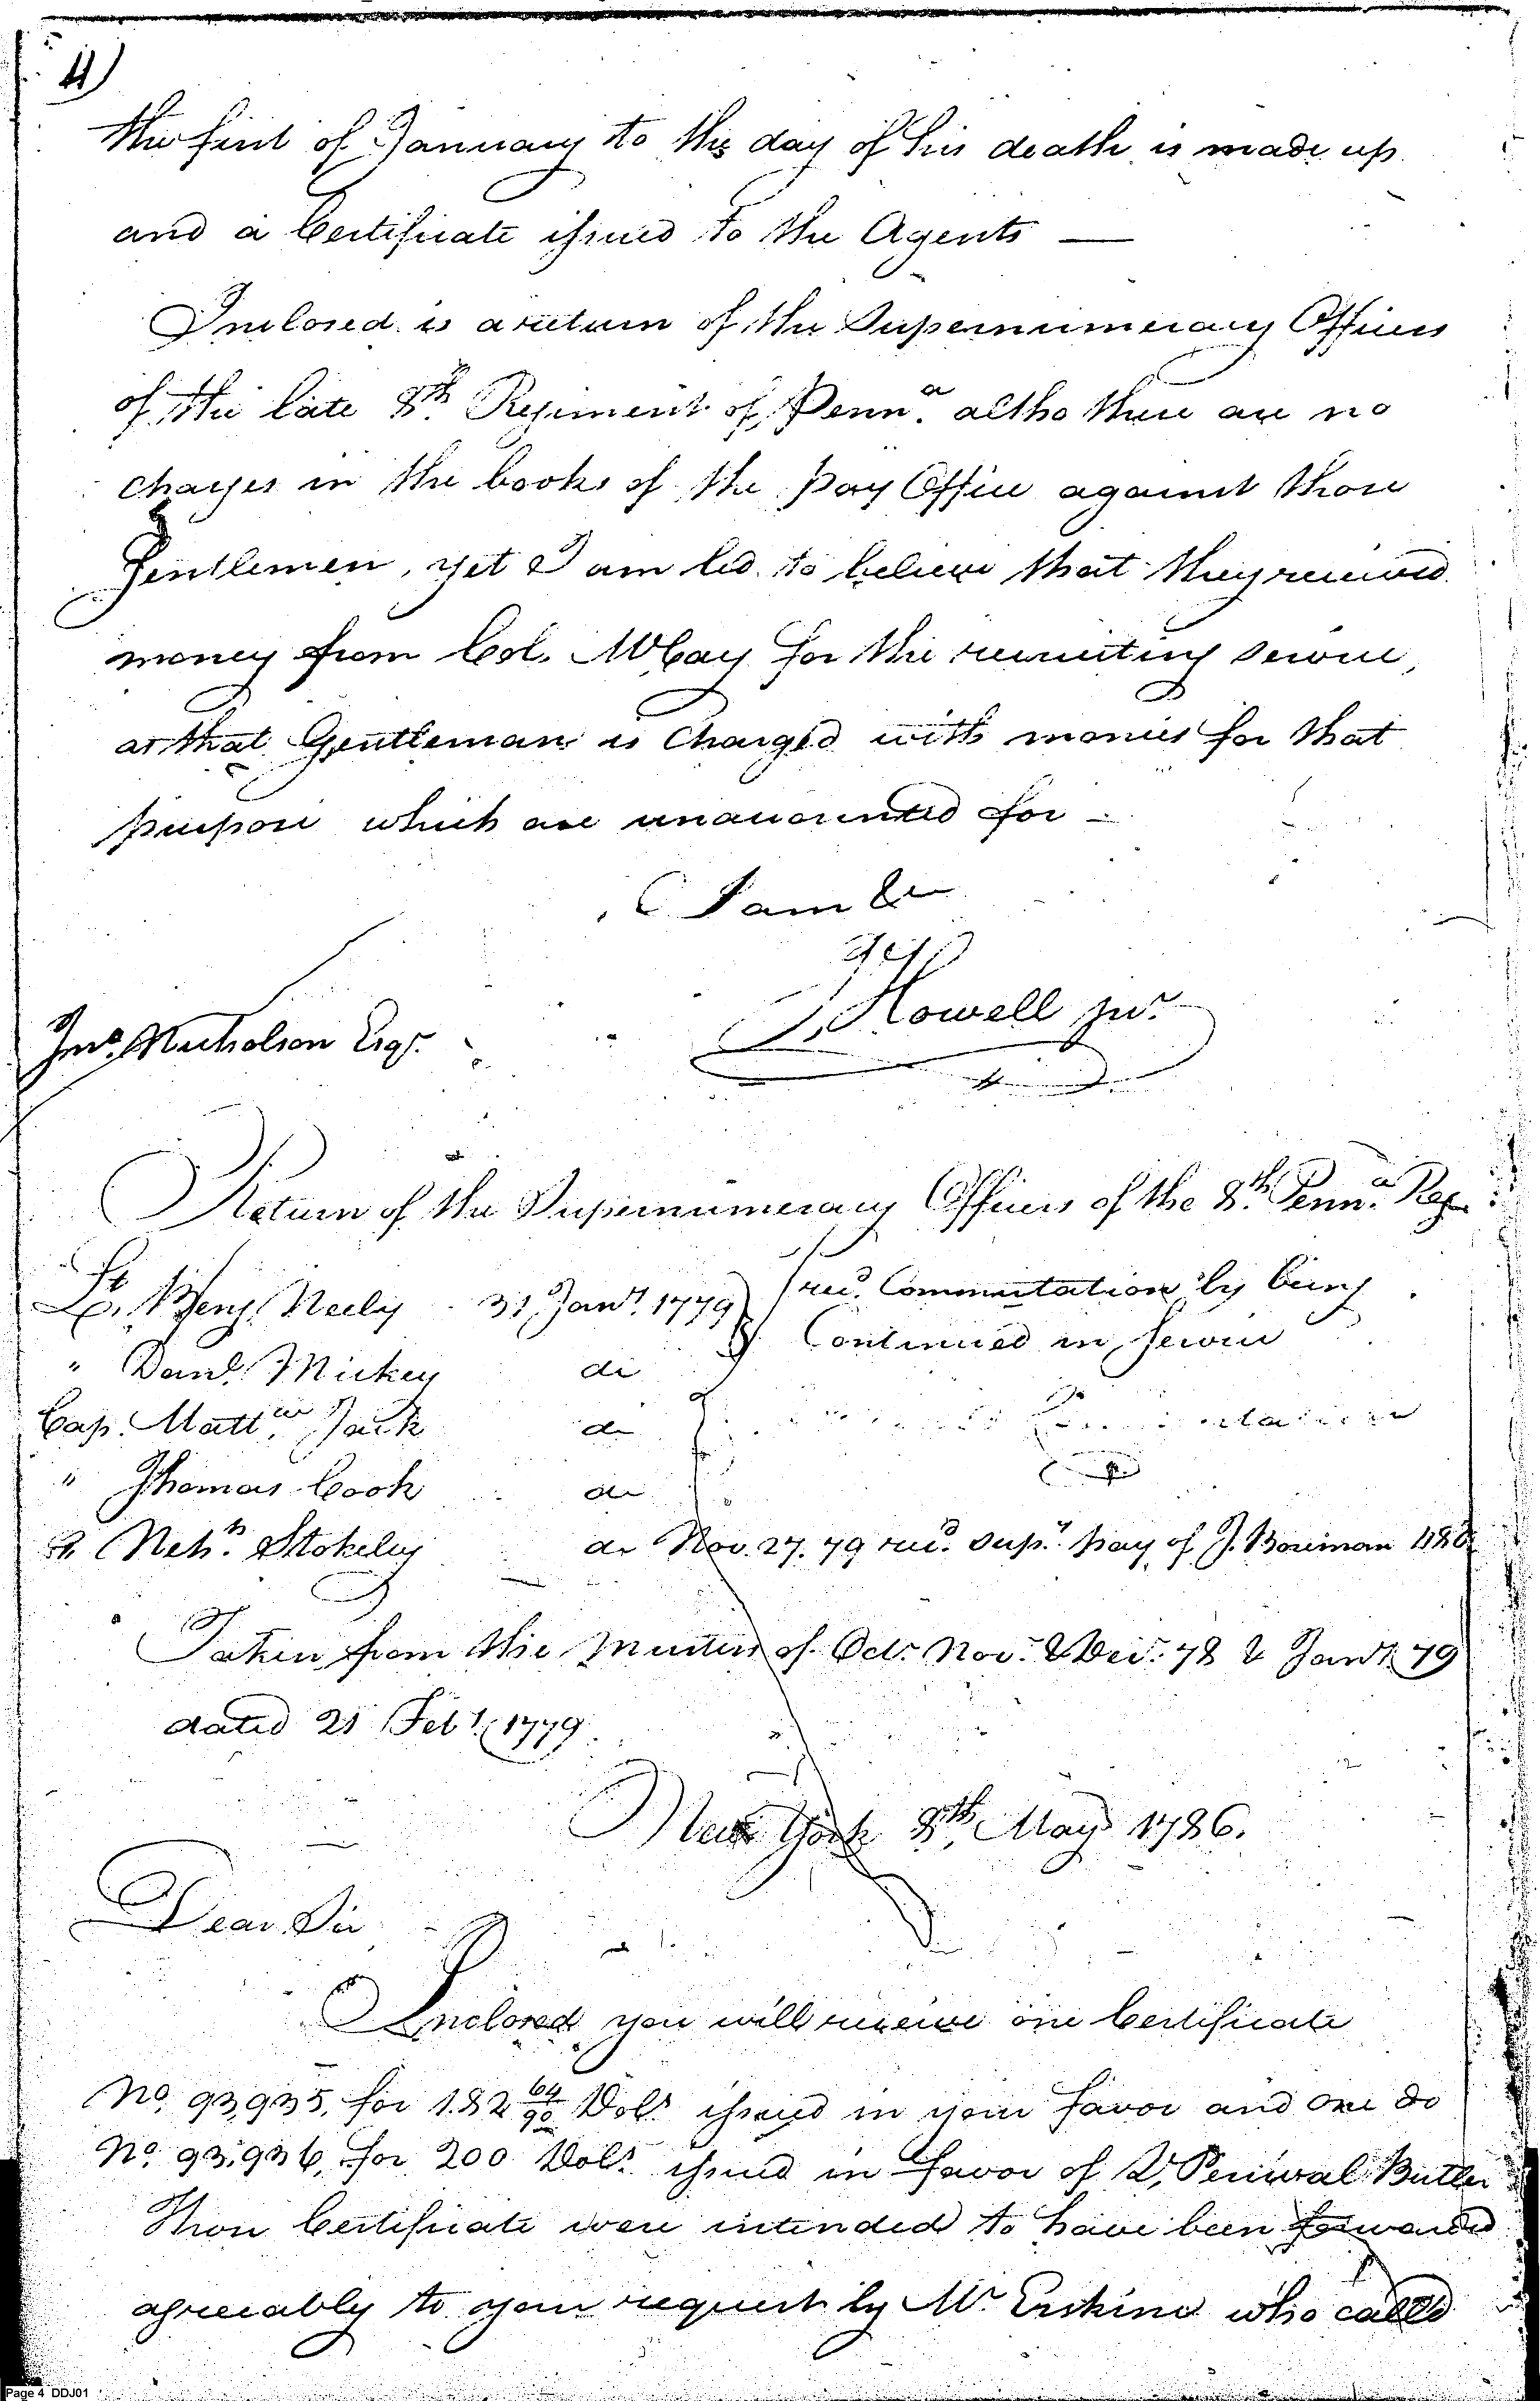 4)
the first of January to the day of his death is made up
and a Certificate issued to the Agents —
Inclosed is a return of the Supernumerary Officers
of the late 8th Regiment of Penna. altho there are no
charges in the books of the pay Office against those
Gentlemen, yet I am led to believe that they received
money from Col. McCay for the recruiting service,
as that Gentleman is Charged with monies for that
purpose which are unaccounted for —
I am &c
J Howell junr.
Jno. Nicholson Esqr.
Return of the Supernumerary Officers of the 8th. Penna. Reg.
Lt. Benj. Neely - 31 Jany. 1779 } recd. Commutation by being
" Danl. Mickey do Continued in service
Cap. Mattw. Jack do
" Thomas Cook do
Lt. Nehh. Stokely do Nov. 27. 79 recd. supy. pay of J. Boreman
Taken from the Musters of Octr. Nov. & Decr. 78 & Jany. 79
dated 21 Feby. 1779
New York 8th. May 1786.
Dear Sir
Inclosed you will receive one Certificate
No. 93,935, for 182 64/90 Dols. issued in your favor and one do
No. 93,936, for 200 Dols. issued in favor of Percival Butler
These Certificate were intended to have been forwarded
agreeably to your request by Mr. Erskine who called
Page 4 DDJ01